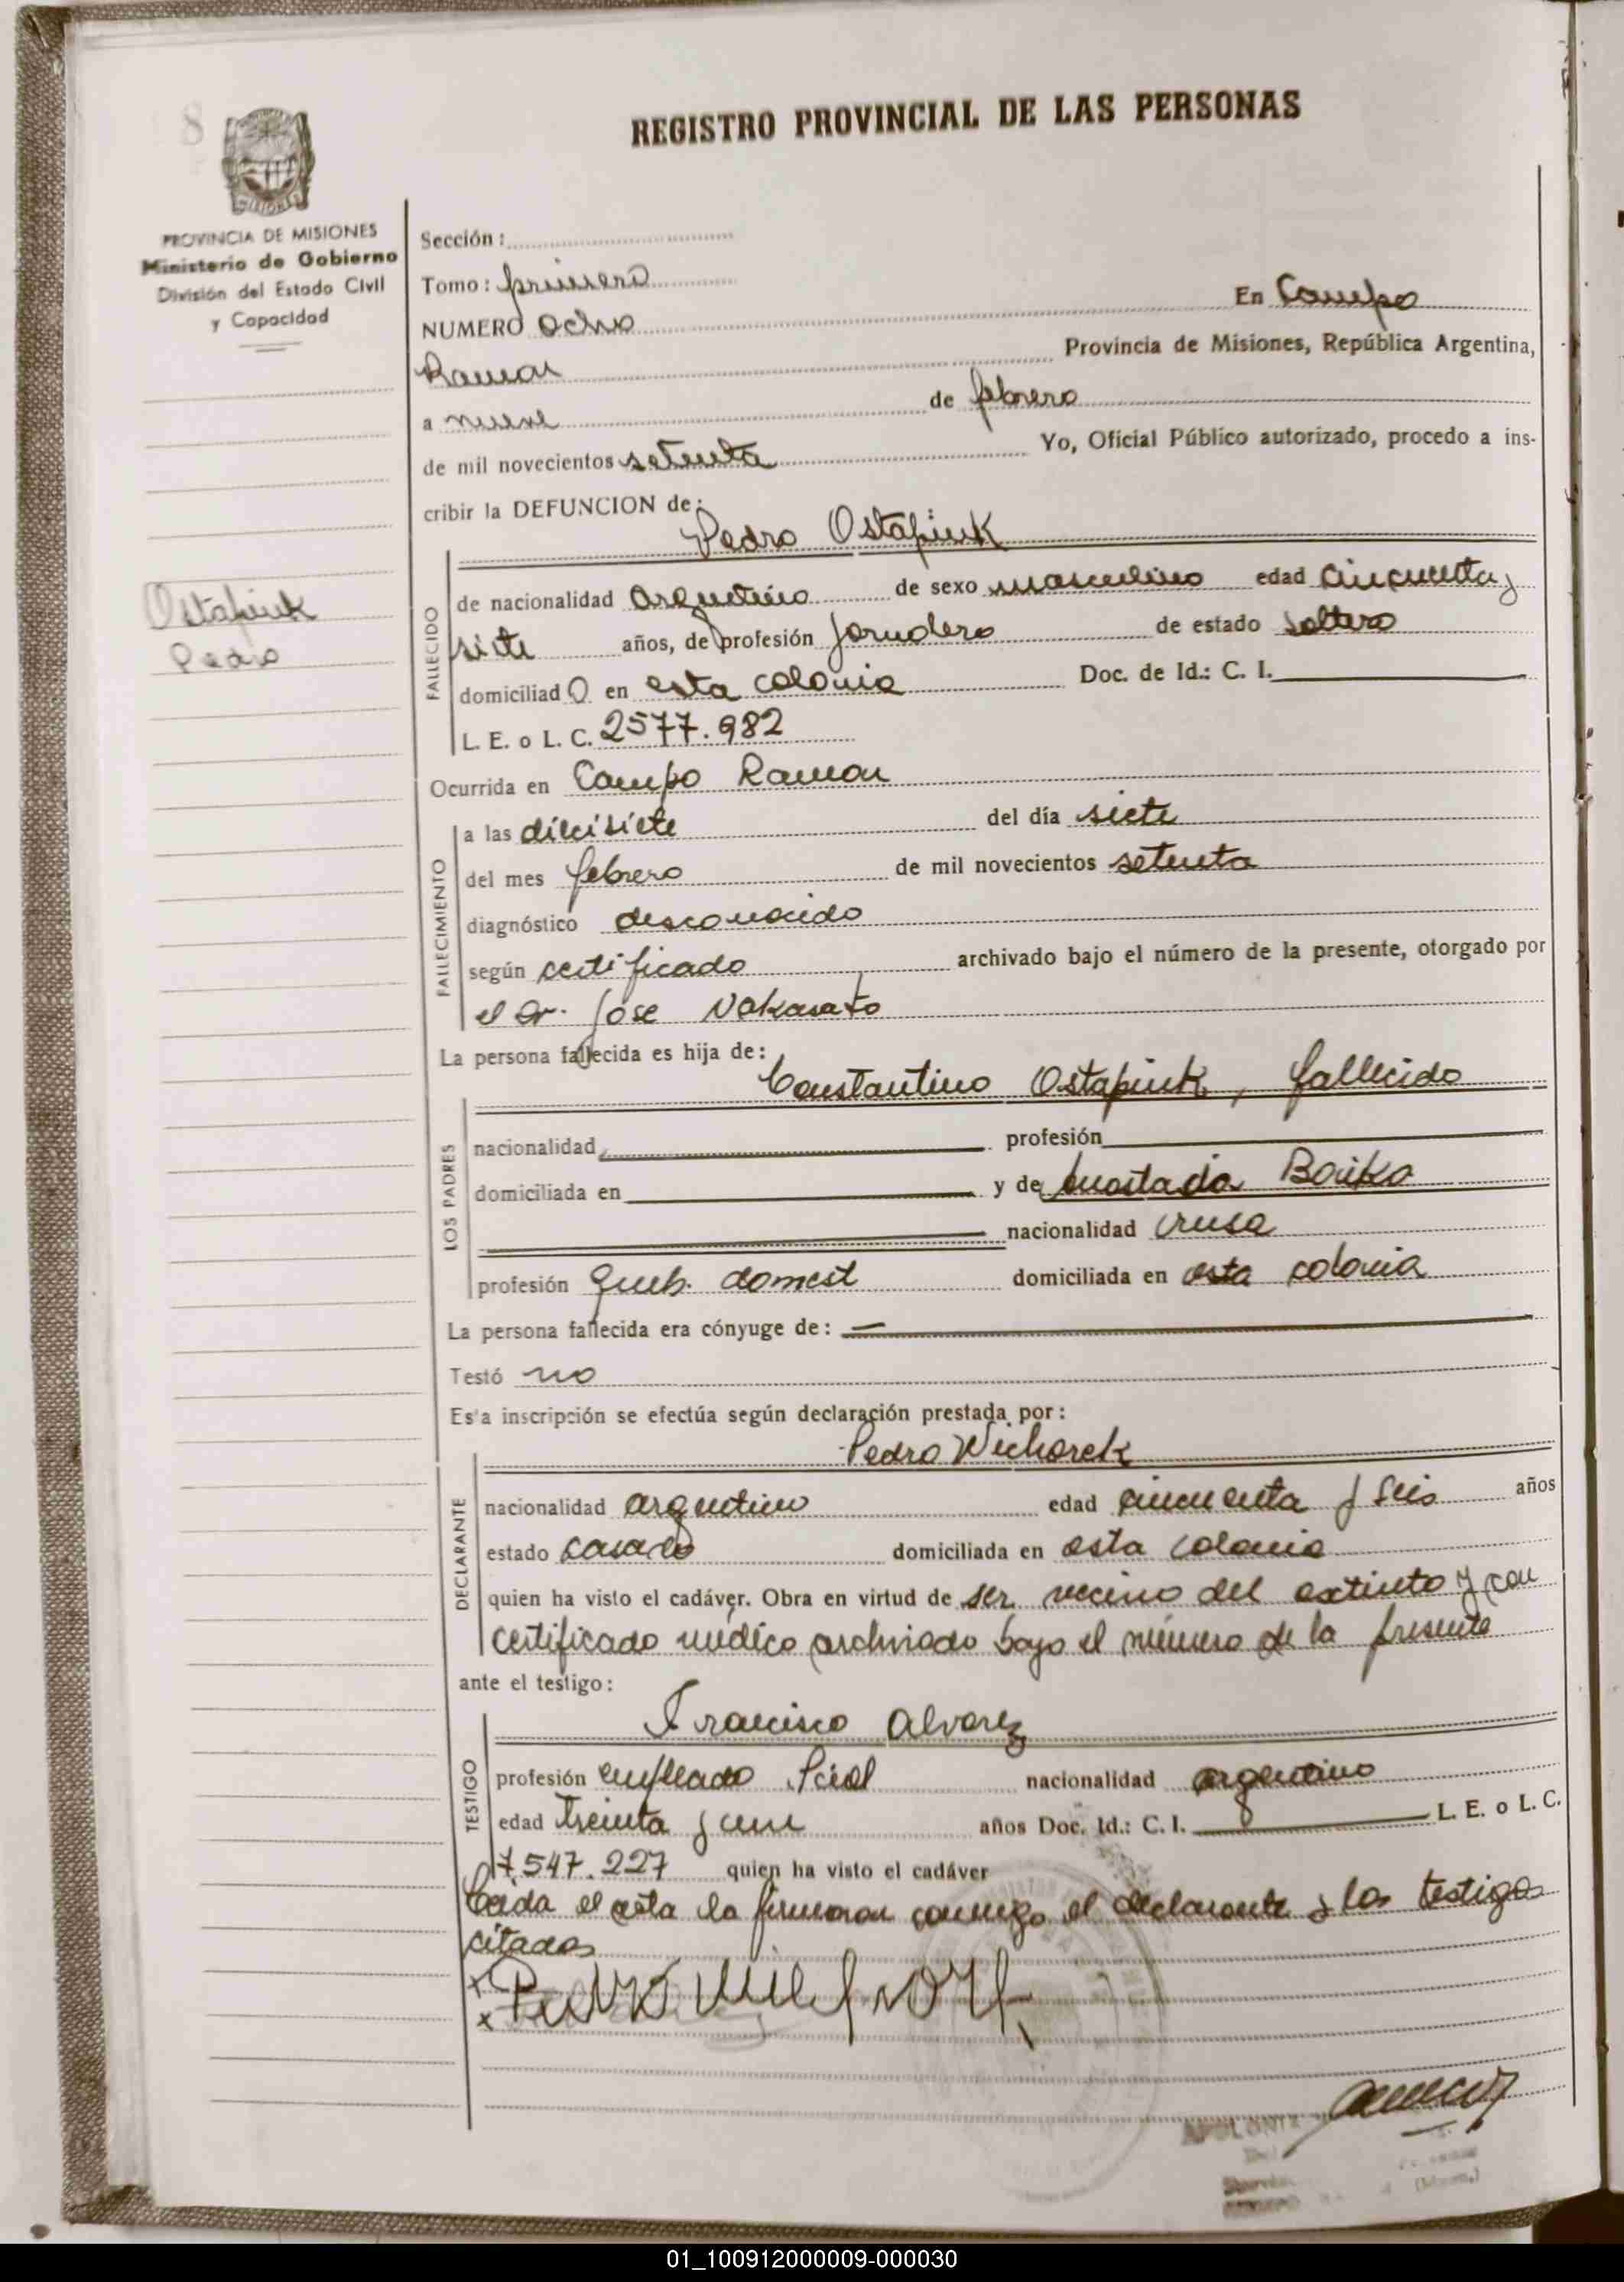 8
REGISTRO PROVINCIAL DE LAS PERSONAS
MISIONES
PROVINCIA DE MISIONES
Ministerio de Gobierno
División del Estado Civil
y Capacidad
Sección :
Tomo : primero
NUMERO ocho En Campo
Ramon Provincia de Misiones, República Argentina,
a nueve de febrero
de mil novecientos setenta Yo, Oficial Público autorizado, procedo a ins-
cribir la DEFUNCION de :
Pedro Ostapiuk
Ostapiuk
Pedro
FALLECIDO
de nacionalidad argentino de sexo masculino edad cincuenta y
siete años, de profesión jornalero de estado soltero
domiciliad o en esta colonia Doc. de Id.: C. I.
L. E. o L. C. 2577.982
Ocurrida en Campo Ramon
FALLECIMIENTO
a las diecisiete del día siete
del mes febrero de mil novecientos setenta
diagnóstico desconocido
según certificado archivado bajo el número de la presente, otorgado por
el Dr. José Nakasato
La persona fallecida es hija de :
Constantino Ostapiuk, fallecido
LOS PADRES
nacionalidad profesión
domiciliada en y de
nacionalidad rusa
profesión queh. domest domiciliada en esta colonia
La persona fallecida era cónyuge de :
Testó no
Esta inscripción se efectúa según declaración prestada por :
Pedro Wichorek
DECLARANTE
nacionalidad argentino edad cincuenta y seis años
estado casado domiciliada en esta colonia
quien ha visto el cadáver. Obra en virtud de ser vecino del extinto y con
certificado médico archivado bajo el número de la presente
ante el testigo :
Francisco Alvarez
TESTIGO
profesión empleado nacionalidad argentino
edad treinta y un años Doc. Id.: C. I. L. E. o L. C.
7.547.227 quien ha visto el cadáver
Leida el acta la firmaron conmigo el declarante y los testigos
citados
01_100912000009-000030